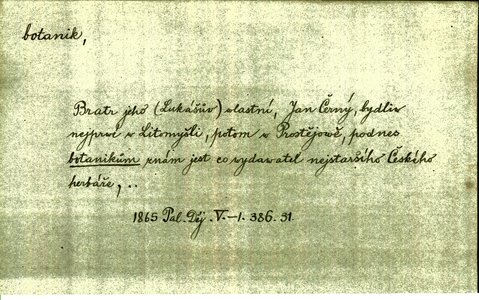 botanik,
Bratr jeho (Lukášův) vlastní, Jan Černý, bydliv
nejprvé v Litomyšli, potom v Prostějově, podnes
botanikům znám jest co vydavatel nejstaršího Českého
herbáře, ..
1865 Pal. Děj. V.-1. 386. 31.